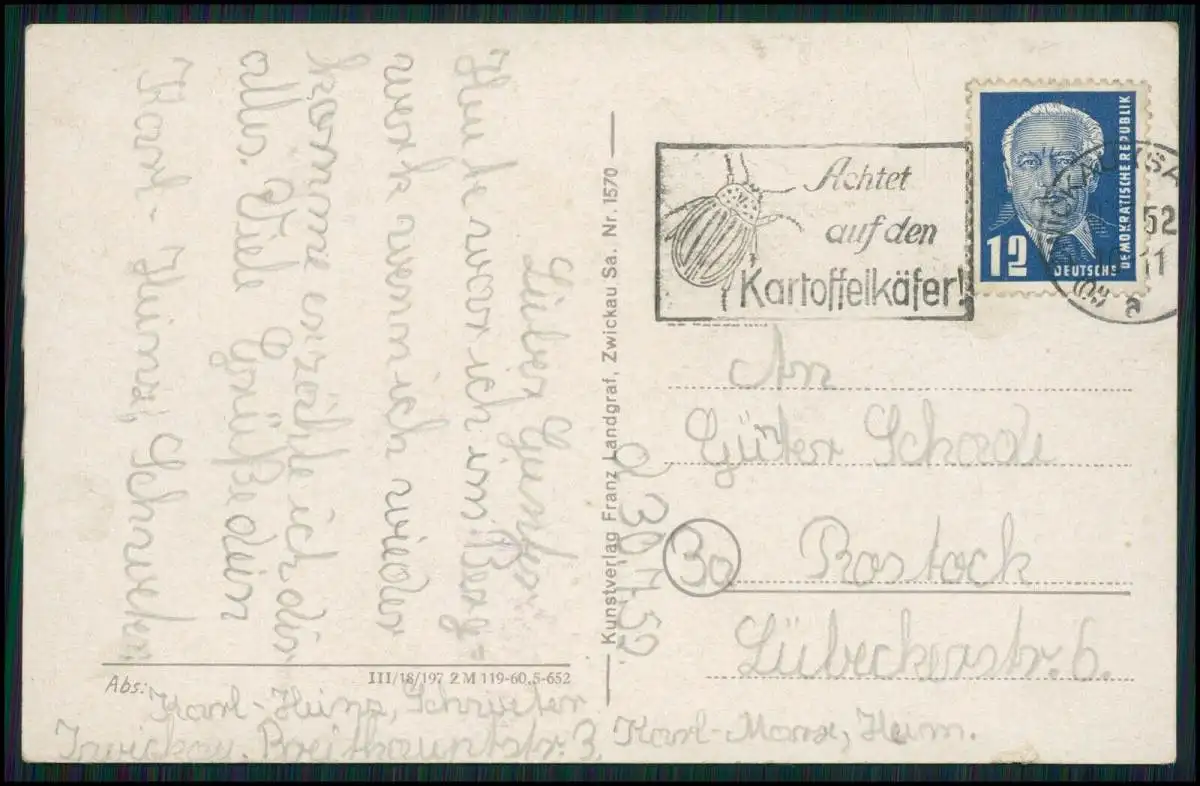 Lieber Günter
Heute war ich im Berg-
werk wenn ich wieder
komme erzähle ich dir
alles. Viele Grüße dein
Karl-Heinz, Schreiter
d 30.7.52.
Kunstverlag Franz Landgraf, Zwickau Sa. Nr. 1570
III/18/197 2M 119-60,5-652
Abs: Karl-Heinz, Schreiter
Zwickau. Breithauptstr. 3, Karl-Marx, Heim.
Achtet
auf den
Kartoffelkäfer!
12
DEUTSCHE
DEMOKRATISCHE REPUBLIK
52
11
a
An
Güter Schade
3a Rostock
Lübeckerstr. 6.